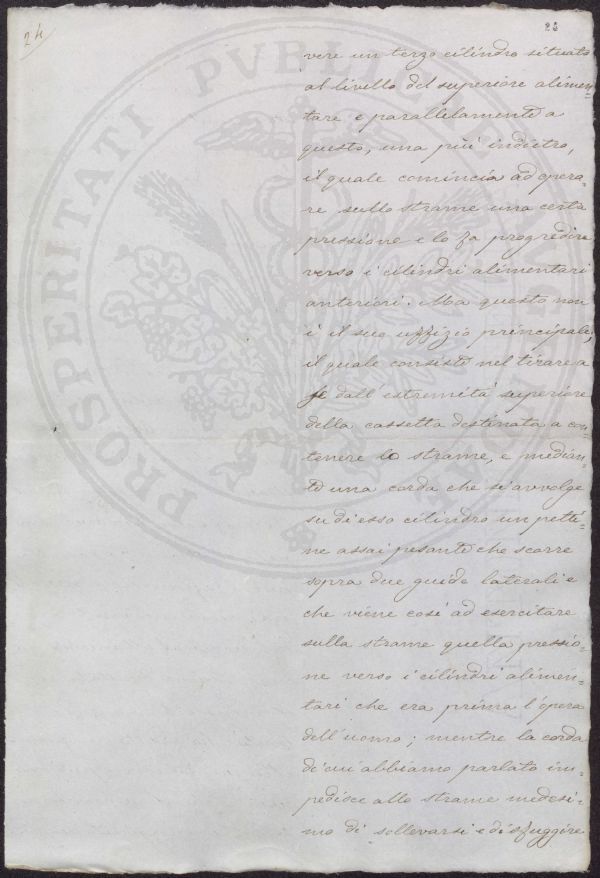 24
26
vere un terzo cilindro situato
al livello del superiore alimen=
tare e parallelamente a
questo, una più indietro,
il quale comincia ad opera=
re sullo strame una certa
pressione e lo fa progredire
verso i cilindri alimentari
anteriori. Ma questo non
è il suo uffizio principale,
il quale consiste nel tirare a
se dall'estremità superiore
della cassetta destinata a con
tenere lo strame, e median=
te una corda che si avvolge
su di esso cilindro un petti=
ne assai pesante che scorre
sopra due guide laterali e
che viene così ad esercitare
sulla strame quella pressio=
ne verso i cilindri alimen=
tari che era prima l'opera
dell'uomo; mentre la corda
di cui abbiamo parlato im=
pedisce allo strame medesi=
mo di sollevarsi e di sfuggire
PROSPERITATI PUBLICAE